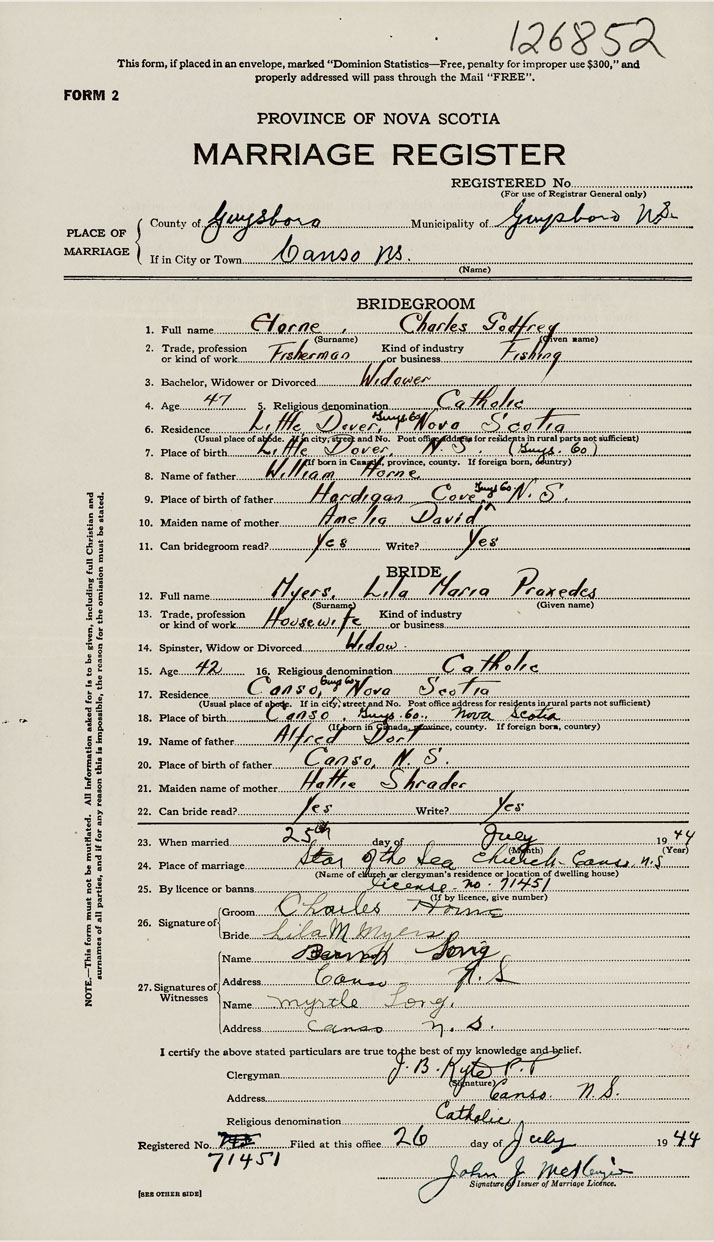 126852
This form, if placed in an envelope, marked "Dominion Statistics—Free, penalty for improper use $300," and
properly addressed will pass through the Mail "FREE".
FORM 2
PROVINCE OF NOVA SCOTIA
MARRIAGE REGISTER
REGISTERED No.
(For use of Registrar General only)
PLACE OF MARRIAGE
County of Guysboro Municipality of Guysboro N.S.
If in City or Town Canso NS.
(Name)
BRIDEGROOM
1. Full name Horne, Charles Godfrey
(Surname) (Given name)
2. Trade, profession or kind of work Fisherman Kind of industry or business Fishing
3. Bachelor, Widower or Divorced Widower
4. Age 47 5. Religious denomination Catholic
6. Residence Little Dover, Guys Co Nova Scotia
(Usual place of abode. If in city, street and No. Post office address for residents in rural parts not sufficient)
7. Place of birth Little Dover, N.S. (Guys. Co)
(If born in Canada, province, county. If foreign born, country)
8. Name of father William Horne
9. Place of birth of father Hardigan Cove, Guys Co N.S.
10. Maiden name of mother Amelia David
11. Can bridegroom read? Yes Write? Yes
BRIDE
12. Full name Myers, Lila Maria Praxedes
(Surname) (Given name)
13. Trade, profession or kind of work Housewife Kind of industry or business
14. Spinster, Widow or Divorced Widow
15. Age 42 16. Religious denomination Catholic
17. Residence Canso, Guys Co Nova Scotia
(Usual place of abode. If in city, street and No. Post office address for residents in rural parts not sufficient)
18. Place of birth Canso, Guys. Co., Nova Scotia
(If born in Canada, province, county. If foreign born, country)
19. Name of father Alfred Dort
20. Place of birth of father Canso, N.S.
21. Maiden name of mother Hattie Shrader
22. Can bride read? Yes Write? Yes
23. When married 25th day of July 1944
(Month) (Year)
24. Place of marriage Star of the Sea Church Canso, N.S
(Name of church or clergyman's residence or location of dwelling house)
25. By licence or banns license no. 71451
(If by licence, give number)
26. Signature of
Groom Charles Horne
Bride Lila M Myers
27. Signatures of Witnesses
Name Long
Address Canso N.S
Name Myrtle Long.
Address Canso N.S.
I certify the above stated particulars are true to the best of my knowledge and belief.
Clergyman J. B. Kyte P.P
(Signature)
Address Canso N.S.
Religious denomination Catholic
Registered No. Filed at this office 26 day of July 1944
71451
John J McKenzie
Signature of Issuer of Marriage Licence.
[SEE OTHER SIDE]
NOTE.—This form must not be mutilated. All information asked for is to be given, including full Christian and
surnames of all parties, and if for any reason this is impossible, the reason for the omission must be stated.